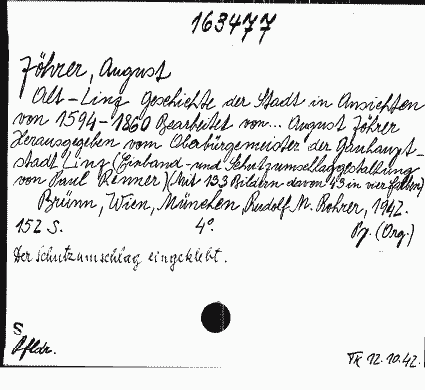 163477
Zöhrer, August
Alt-Linz Geschichte der Stadt in Ansichten
von 1594-1860 Bearbeitet von... August Zöhrer
Herausgegeben vom Oberbürgermeister der Gauhaupt-
stadt Linz (Einband- und Schutzumschlaggestaltung
von Paul Renner) (Mit 133 Bildern davon 43 in vier Farben)
Brünn, Wien, München, Rudolf M. Rohrer, 1942.
152 S. 4°. Pp. (Org.)
Der Schutzumschlag eingeklebt.
S
Pfldr.
12.10.42.